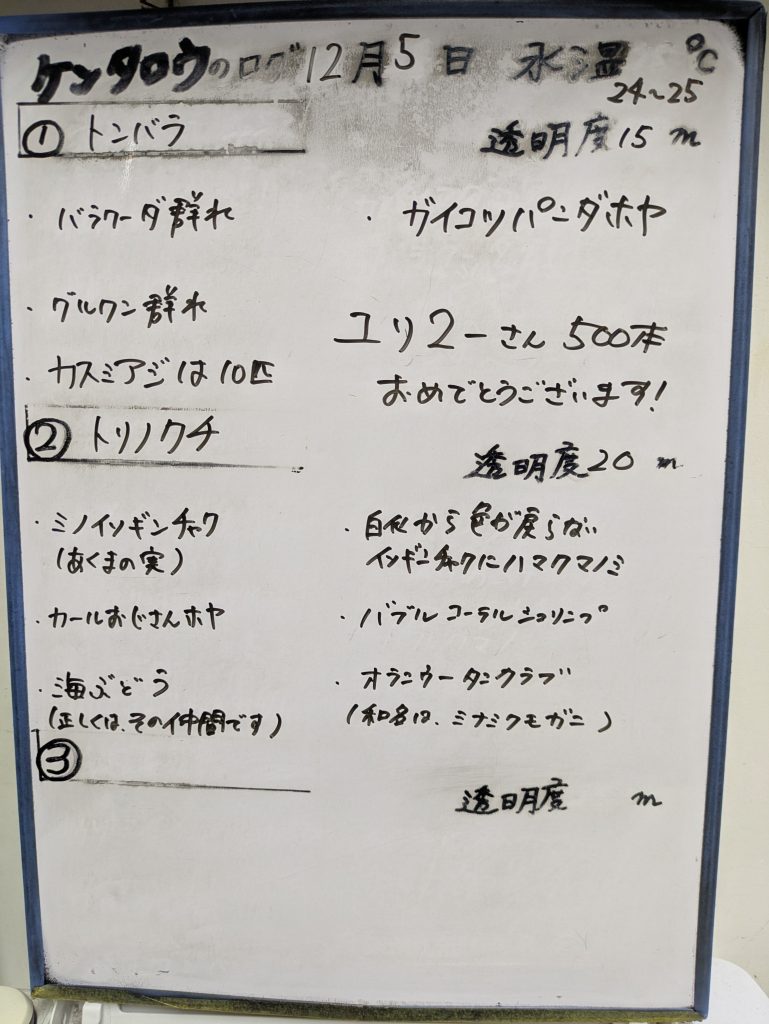 ケンタロウのログ 12月5日 水温 ℃
24~25
① トンバラ
透明度15 m
・バラクーダ群れ
・ガイコツパンダホヤ
・グルクン群れ
ユリ2ーさん 500本
・カスミアジは10匹
おめでとうございます!
② トリノクチ
透明度20 m
・ミノイソギンチャク
(あくまの実)
・カールおじさんホヤ
・海ぶどう
(正しくは、その仲間です)
・白化から色が戻らない
イソギンチャクにハマクマノミ
・バブルコーラルシュリンプ
・オランウータンクラブ
(和名は、ミナミクモガニ)
③
透明度 m